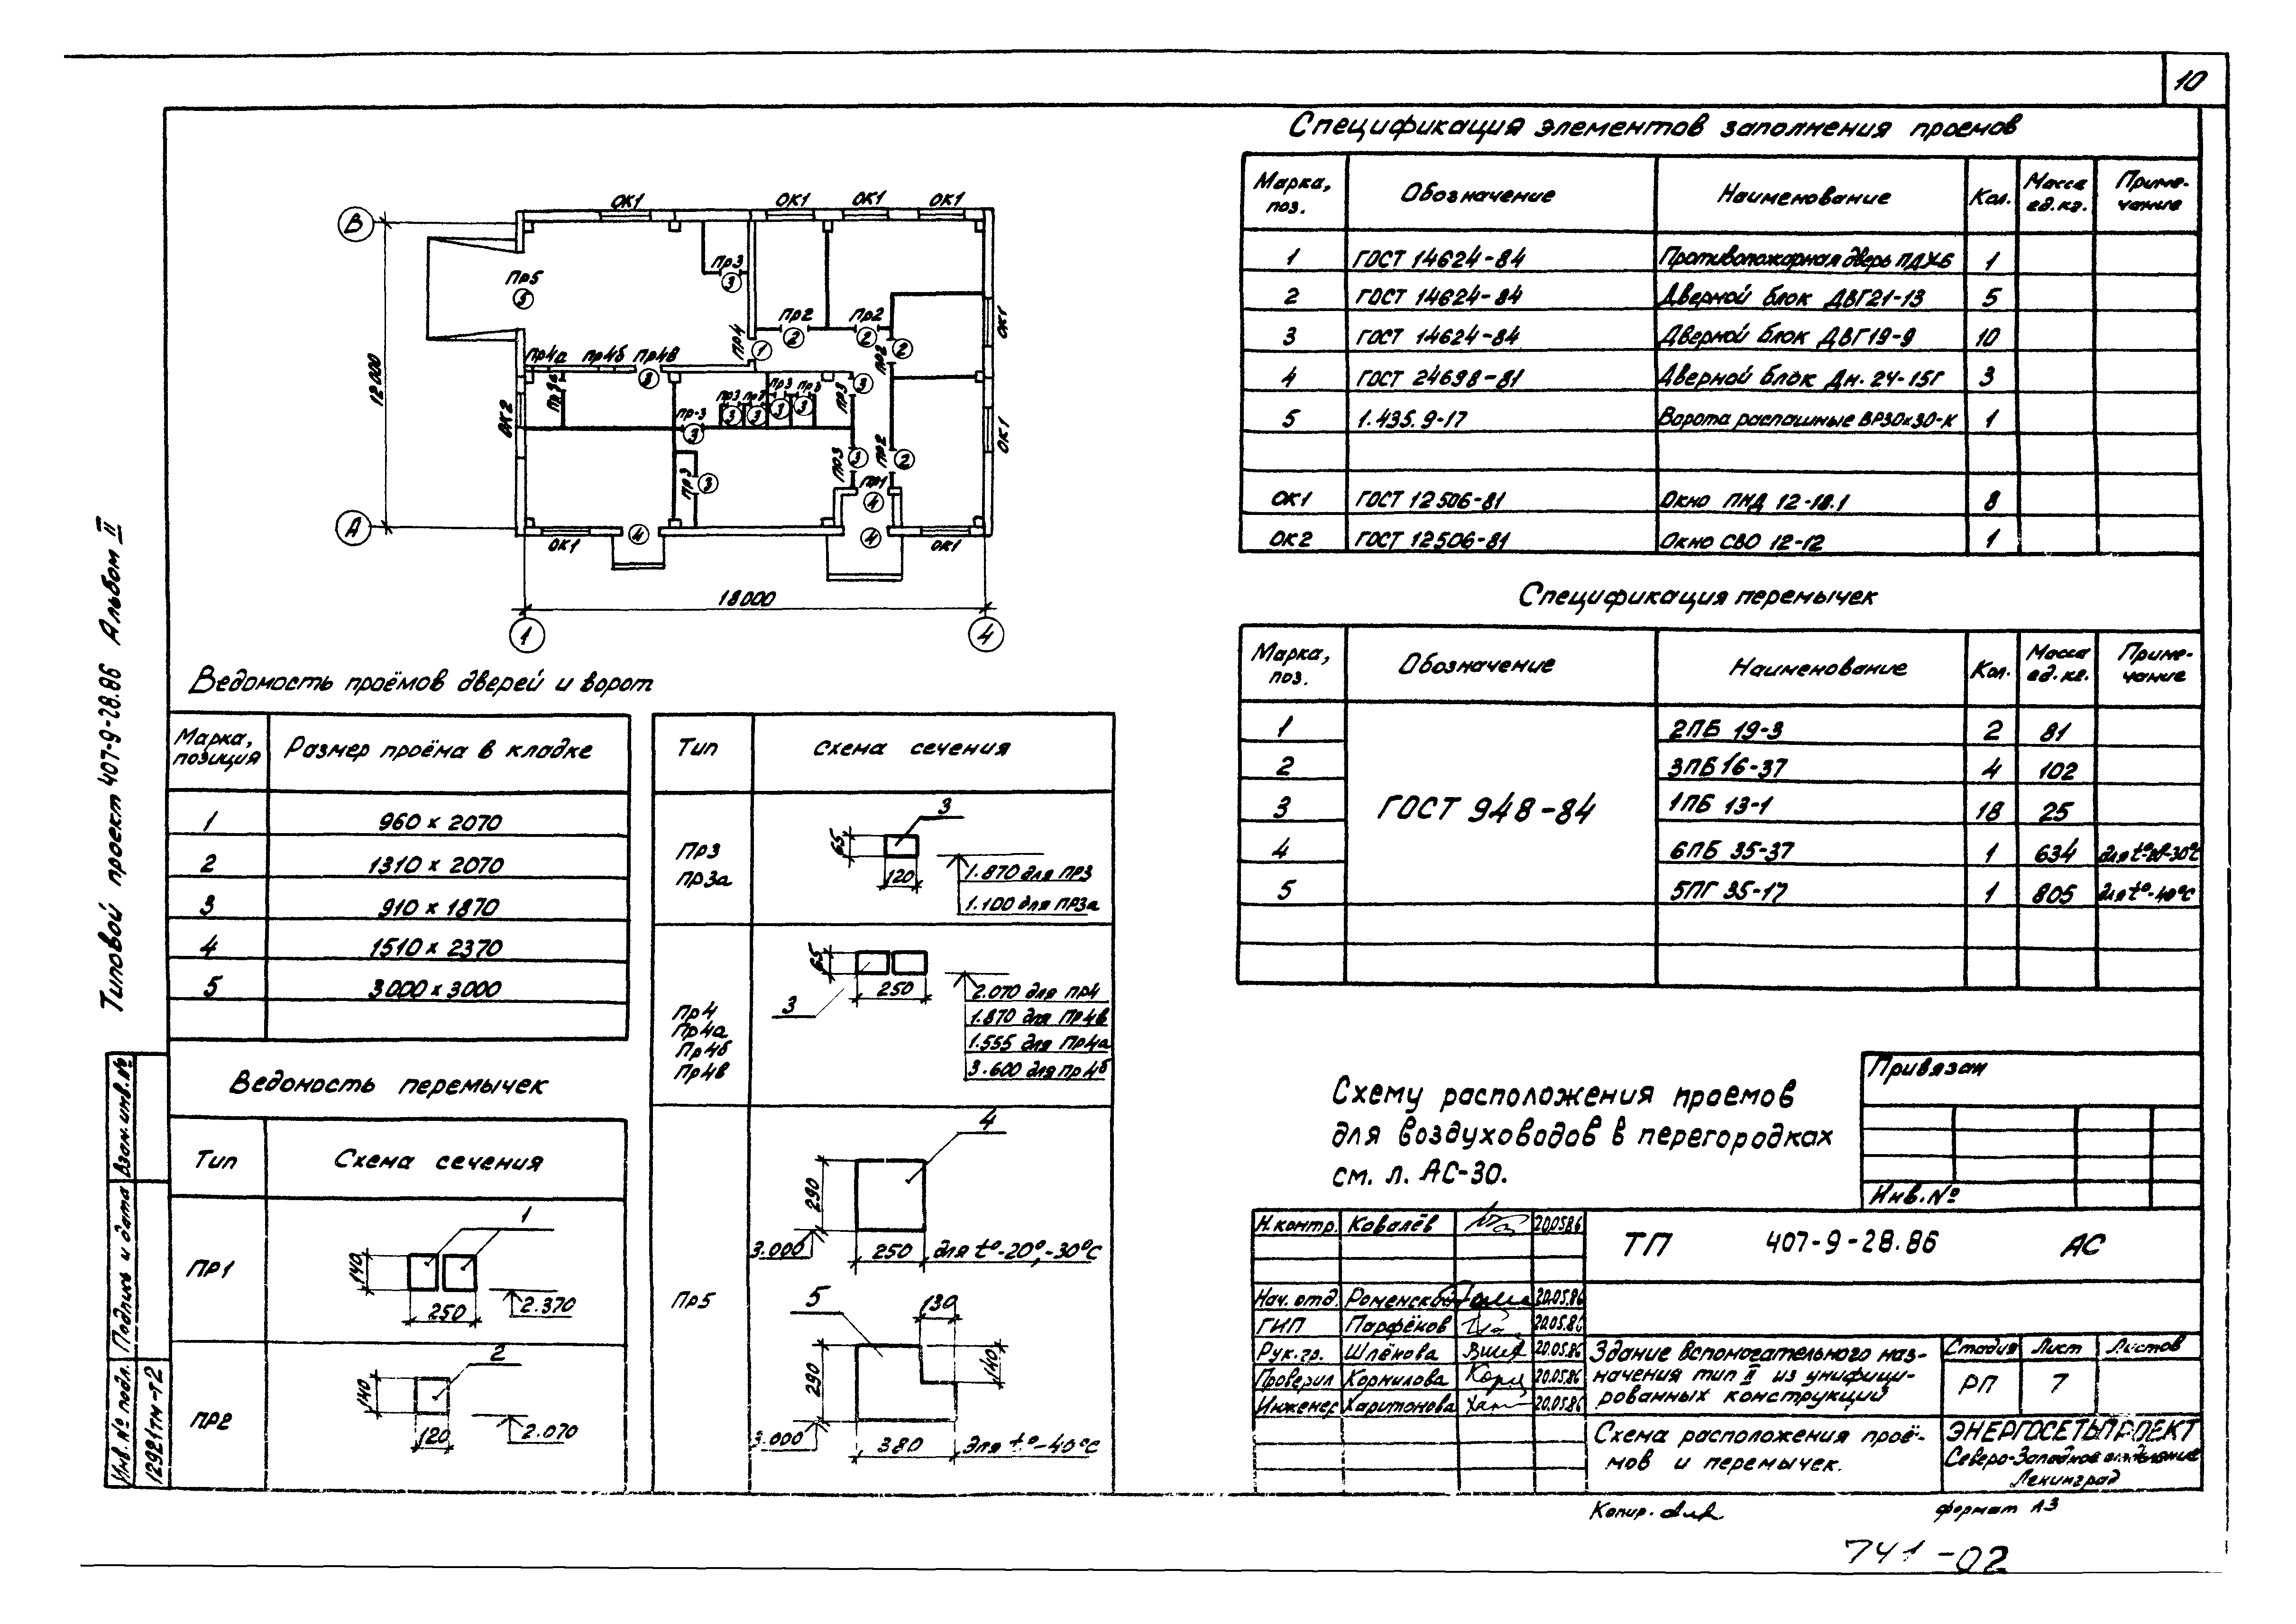 10
Типовой проект 407-9-28.86 Альбом II
В
А
1
4
12000
18000
ОК1
ОК1
ОК1
ОК1
Пр5
5
Пр3
3
Пр4
1
Пр2
2
Пр2
2
Пр2
2
ОК1
Пр4а
Пр4б
Пр4в
3
ОК2
Пр3
3
Пр3
3
Пр3
3
Пр3
3
Пр3
3
ОК1
Пр2
2
Пр1
4
4
4
ОК1
ОК1
Ведомость проёмов дверей и ворот
Марка, позиция
Размер проёма в кладке
1 960 x 2070
2 1310 x 2070
3 910 x 1870
4 1510 x 2370
5 3000 x 3000
Ведомость перемычек
Тип
Схема сечения
ПР1
1
140
250
2.370
ПР2
2
140
120
2.070
Тип
Схема сечения
Пр3
Пр3а
3
65
120
1.870 для ПР3
1.100 для ПР3а
Пр4
Пр4а
Пр4б
Пр4в
65
250
3
2.070 для пр4
1.870 для Пр4в
1.555 для Пр4а
3.600 для Пр4б
Пр5
4
290
3.000
250
для t°-20°,-30°С
5
130
290
140
3.000
380
для t°-40°С
Спецификация элементов заполнения проемов
Марка, поз.
Обозначение
Наименование
Кол.
Масса ед.кг.
Приме-
чание
1 ГОСТ 14624-84 Противопожарная дверь ПДХ-6 1
2 ГОСТ 14624-84 Дверной блок ДВГ21-13 5
3 ГОСТ 14624-84 Дверной блок ДВГ19-9 10
4 ГОСТ 24698-81 Дверной блок Дн. 24-15Г 3
5 1.435.9-17 Ворота распашные ВР30х30-К 1
ОК1 ГОСТ 12506-81 Окно ПНД 12-18.1 8
ОК2 ГОСТ 12506-81 Окно СВО 12-12 1
Спецификация перемычек
Марка, поз.
Обозначение
Наименование
Кол.
Масса ед. кг.
Приме-
чание
ГОСТ 948-84
1 2ПБ 19-3 2 81
2 3ПБ 16-37 4 102
3 1ПБ 13-1 18 25
4 6ПБ 35-37 1 634 для t°-20°-30°С
5 5ПГ 35-17 1 805 для t°-40°С
Схему расположения проемов
для воздуховодов в перегородках
см. л. АС-30.
Привязан
Инв.№
Н.контр. Ковалёв 20.05.86
Нач. отд 20.05.86
ГИП Парфёнов 20.05.86
Рук.гр. Шлёнова 20.05.86
Проверил Корнилова 20.05.86
Инженер Харитонова 20.05.86
ТП 407-9-28.86 АС
Здание вспомогательного наз-
начения тип II из унифици-
рованных конструкций
Стадия Лист Листов
РП 7
Схема расположения проё-
мов и перемычек.
ЭНЕРГОСЕТЬПРОЕКТ
Северо-Западное отделение
Ленинград
Копир.
формат А3
741-02
Взам.инв.№
Подпись и дата
Инв.№ подл.
12921тм-т2